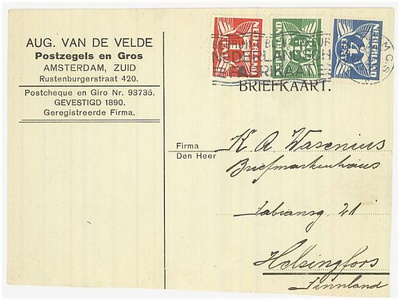 AUG. VAN DE VELDE
Postzegels en Gros
AMSTERDAM, ZUID
Rustenburgerstraat 420.
Postcheque en Giro Nr. 93735.
GEVESTIGD 1890.
Geregistreerde Firma.
NEDERLAND
NEDERLAND
NEDERLAND
4
CENT
BRIEFKAART.
Firma
Den Heer
K. A. Wasenius
Briefmarkenhaus
21
Helsingfors
Finnland